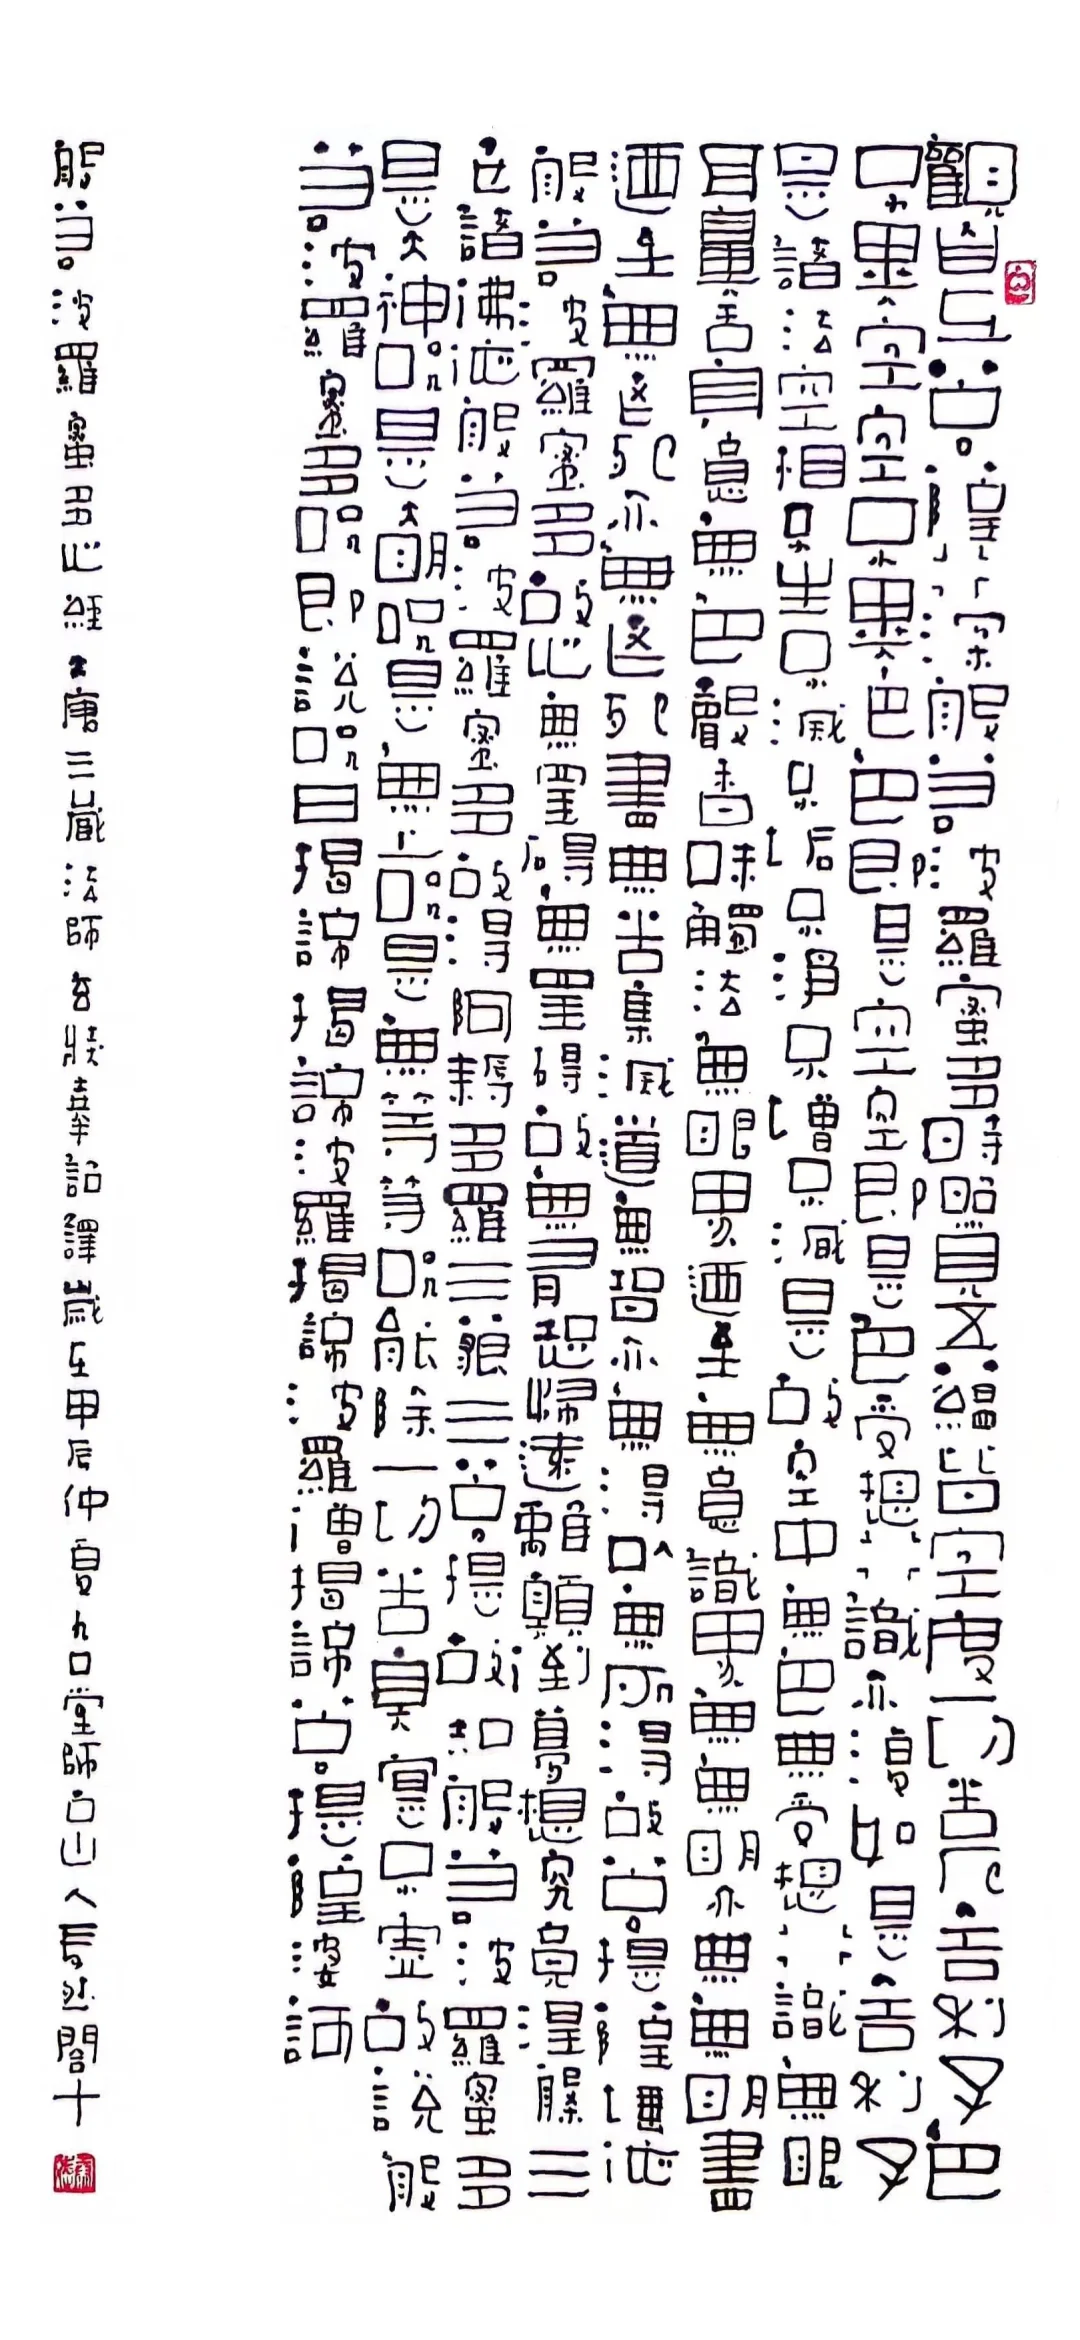 觀自在菩薩行深般若波羅蜜多時照見五蘊皆空度一切苦厄舍利子色
不異空空不異色色即是空空即是色受想行識亦復如是舍利子
是諸法空相不生不滅不垢不淨不增不減是故空中無色無受想行識無眼
耳鼻舌身意無色聲香味觸法無眼界迺至無意識界無無明亦無無明盡
迺至無老死亦無老死盡無苦集滅道無智亦無得以無所得故菩提薩埵依
般若波羅蜜多故心無罣礙無罣礙故無有恐怖遠離顛倒夢想究竟涅槃三
世諸佛依般若波羅蜜多故得阿耨多羅三藐三菩提故知般若波羅蜜多
是大神咒是大明咒是無上咒是無等等咒能除一切苦真實不虛故說般
若波羅蜜多咒即說咒曰揭諦揭諦波羅揭諦波羅僧揭諦菩提薩婆訶
般若波羅蜜多心經大唐三藏法師玄奘奉詔譯歲在甲辰仲夏九口堂師白山人